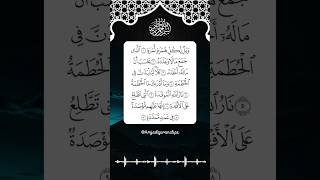 وَيْلٌ لِّكُلِّ هُمَزَةٍ لُّمَزَةٍ ١ ٱلَّذِى
جَمَعَ مَالًا وَعَدَّدَهُۥ ٢ يَحْسَبُ أَنَّ
مَالَهُۥٓ أَخْلَدَهُۥ ٣ كَلَّا ۖ لَيُنۢبَذَنَّ فِى
ٱلْحُطَمَةِ ٤ وَمَآ أَدْرَىٰكَ مَا ٱلْحُطَمَةُ
٥ نَارُ ٱللَّهِ ٱلْمُوقَدَةُ ٦ ٱلَّتِى تَطَّلِعُ
عَلَى ٱلْأَفْـِٔدَةِ ٧ إِنَّهَا عَلَيْهِم مُّؤْصَدَةٌ
٨ فِى عَمَدٍ مُّمَدَّدَةٍۭ ٩